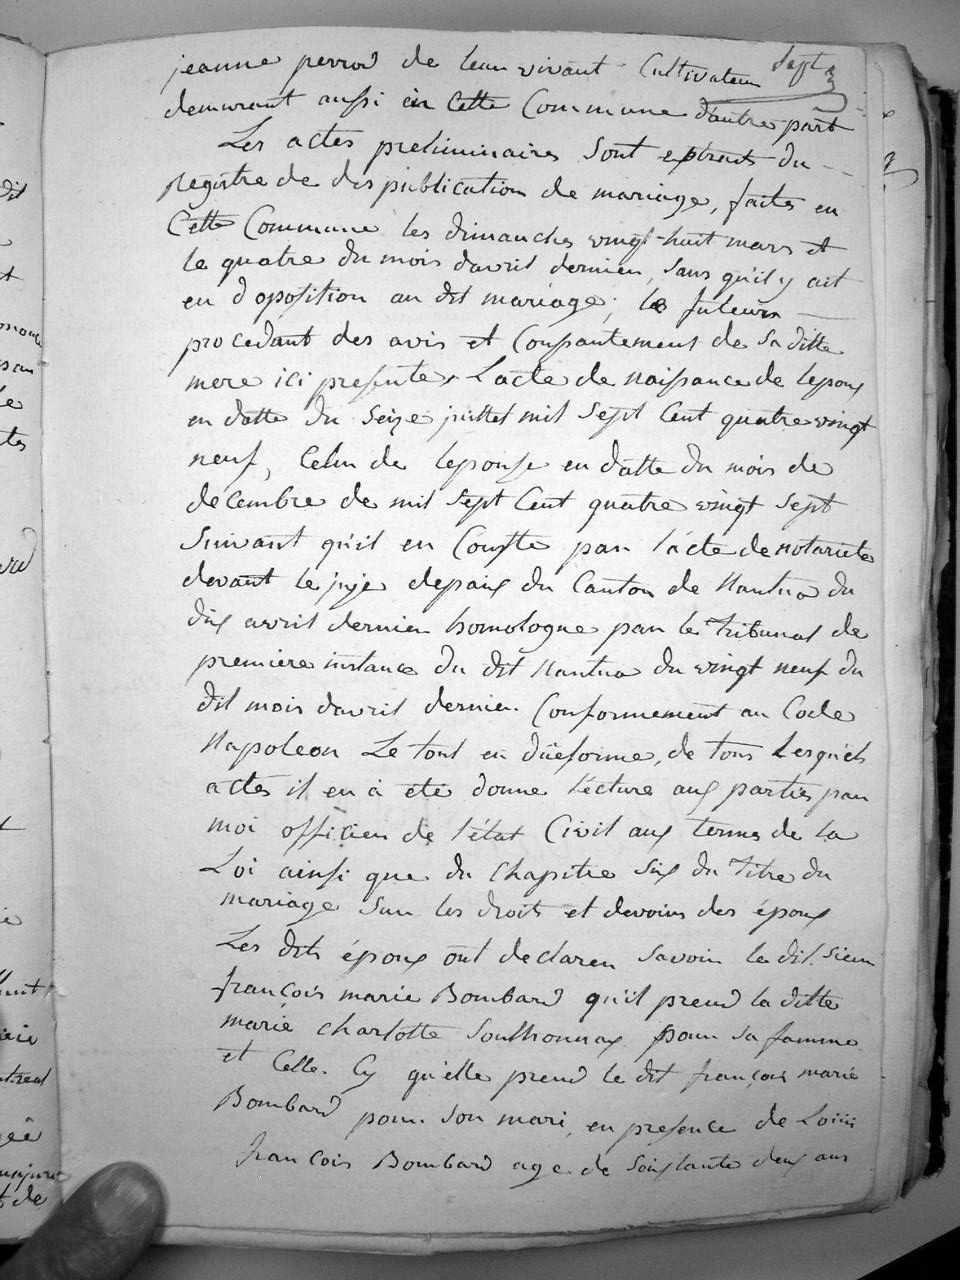 Sept
jeanne perrod de leur vivant Cultivateur
demurant aussi en Cette Commune d'autre part
Les actes preliminaires sont extraits du
registre de des publication de mariage, faites en
Cette Commune les dimanches vingt-huit mars et
le quatre du mois davril dernier, sans qu'il y ait
eu d oposition au dit mariage; les futeurs
procedant des avis et Consantement de sa ditte
mere ici presente, Lacte de naissance de lepoux
en datte du seize juillet mil sept Cent quatre vingt
neuf, Celui de leponse en datte du mois de
decembre de mil sept Cent quatre vingt sept
suivant qu'il en Conste par l'acte de notariete
devant le juge depaix du Canton de Nantua du
dix avril dernier homologue par le tribunal de
premiere instance du dit Nantua du vingt neuf du
dit mois davril dernier. Conformement au Code
Napoleon Le tout en düeforme, de tous Lesquels
actes il en à eté donne lécture aux parties par
moi officier de l'état Civil aux termes de la
Loi ainsi que du Chapitre six du titre du
mariage sur les droits et devoirs des époux
Les dits époux ont declarer savoir le dit Sieur
françois marie Bombard qu'il prend la ditte
marie charlotte Southonnax pour sa famme
et Celle Cy qu'elle prend le dit françois marie
Bombard pour son mari, en presence de Loüis
francois Bombard age de soixante deux ans